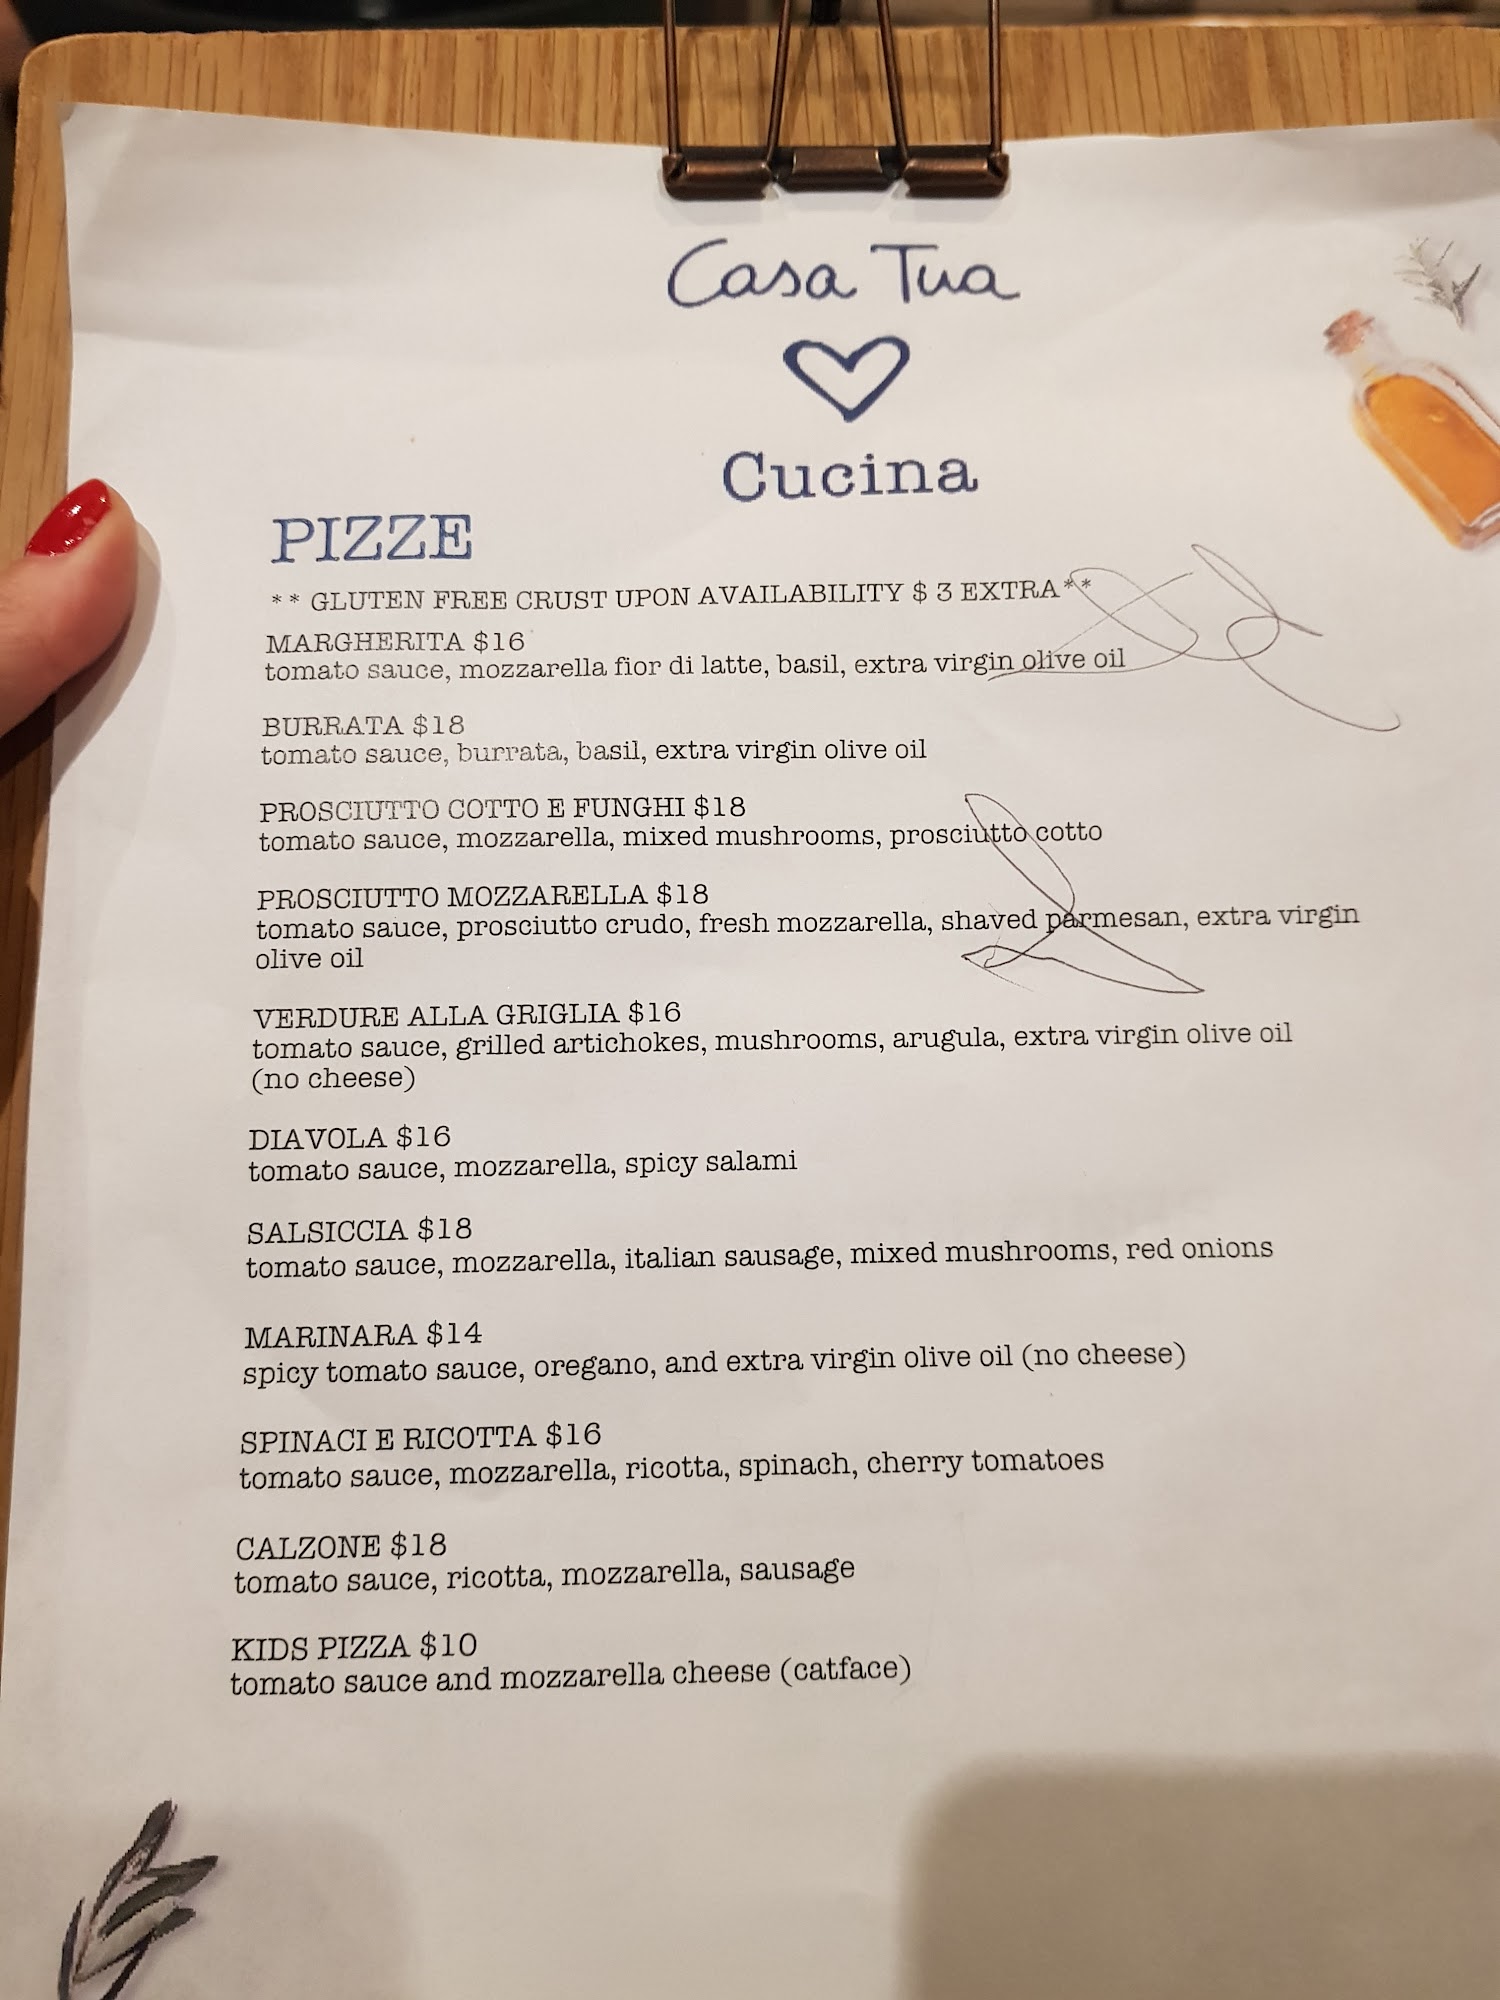 Casa Tua
Cucina
PIZZE
** GLUTEN FREE CRUST UPON AVAILABILITY $ 3 EXTRA**
MARGHERITA $16
tomato sauce, mozzarella fior di latte, basil, extra virgin olive oil
BURRATA $18
tomato sauce, burrata, basil, extra virgin olive oil
PROSCIUTTO COTTO E FUNGHI $18
tomato sauce, mozzarella, mixed mushrooms, prosciutto cotto
PROSCIUTTO MOZZARELLA $18
tomato sauce, prosciutto crudo, fresh mozzarella, shaved parmesan, extra virgin
olive oil
VERDURE ALLA GRIGLIA $16
tomato sauce, grilled artichokes, mushrooms, arugula, extra virgin olive oil
(no cheese)
DIAVOLA $16
tomato sauce, mozzarella, spicy salami
SALSICCIA $18
tomato sauce, mozzarella, italian sausage, mixed mushrooms, red onions
MARINARA $14
spicy tomato sauce, oregano, and extra virgin olive oil (no cheese)
SPINACI E RICOTTA $16
tomato sauce, mozzarella, ricotta, spinach, cherry tomatoes
CALZONE $18
tomato sauce, ricotta, mozzarella, sausage
KIDS PIZZA $10
tomato sauce and mozzarella cheese (catface)